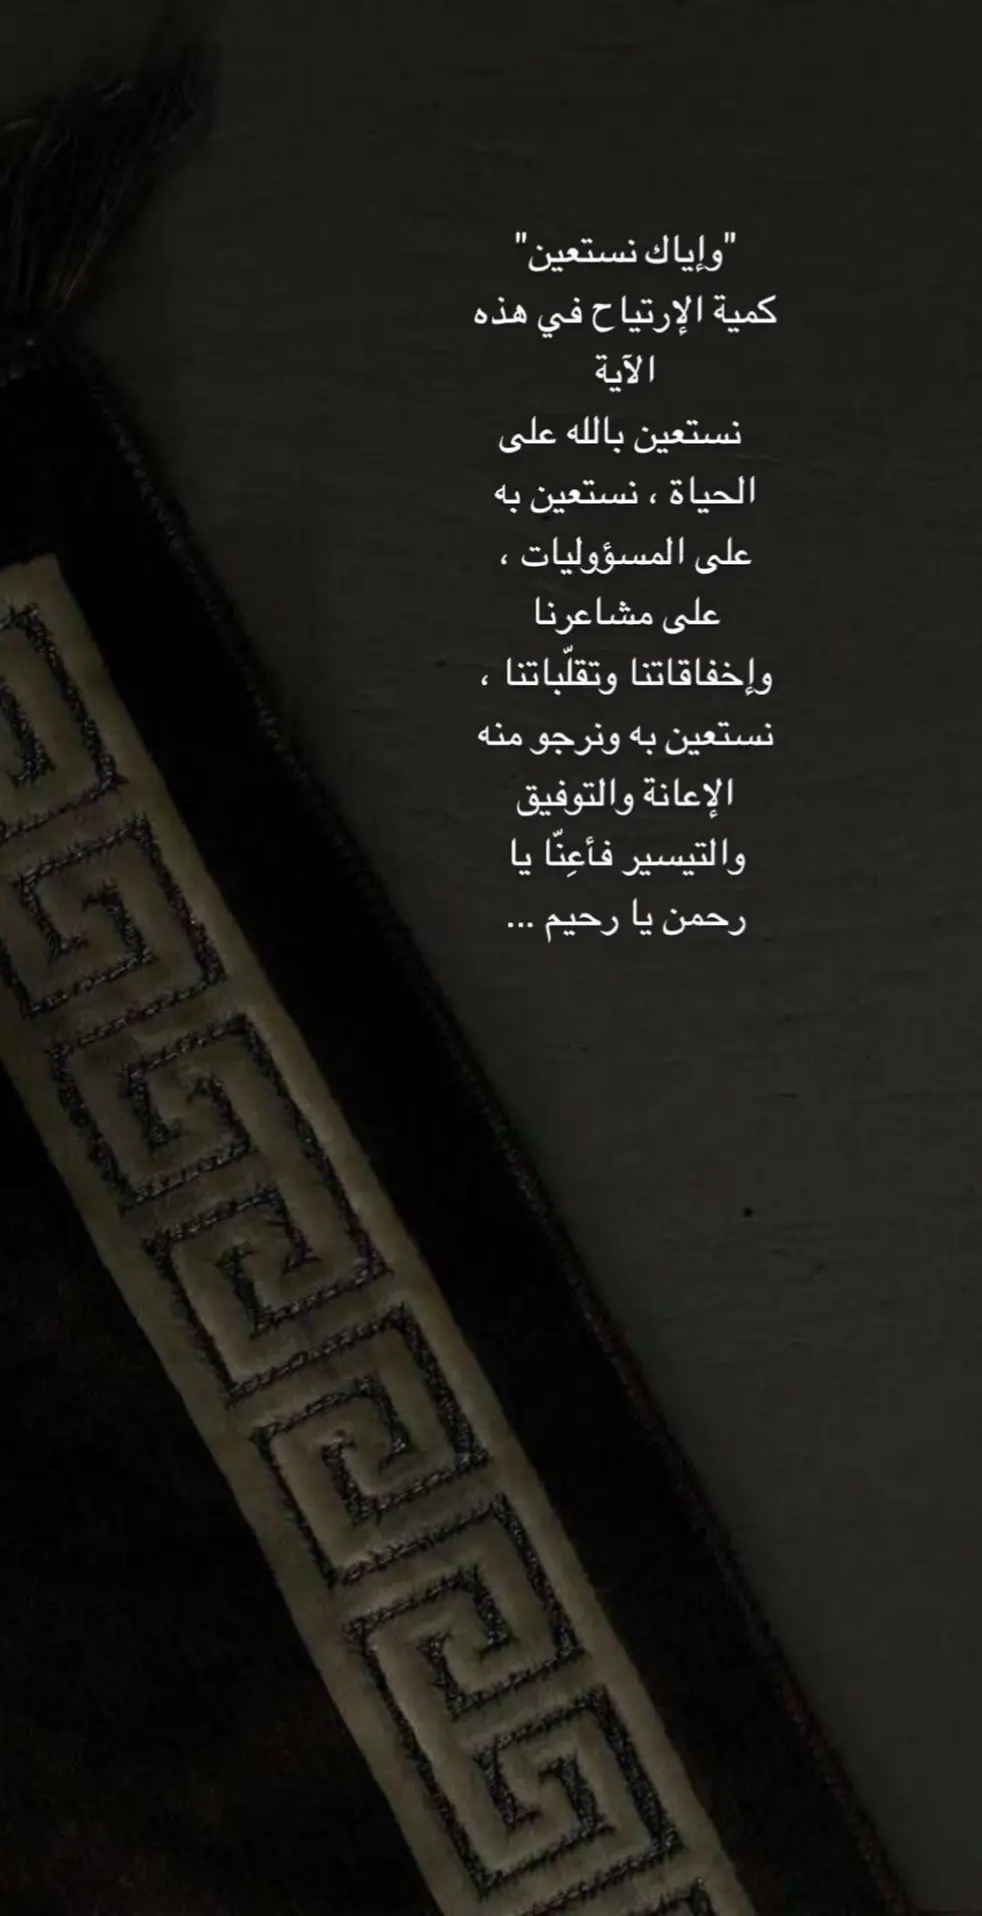 "وإياك نستعين"
كمية الإرتياح في هذه
الآية
نستعين بالله على
الحياة ، نستعين به
على المسؤوليات ،
على مشاعرنا
وإخفاقاتنا وتقلّباتنا ،
نستعين به ونرجو منه
الإعانة والتوفيق
والتيسير فأعِنّا يا
رحمن يا رحيم ...